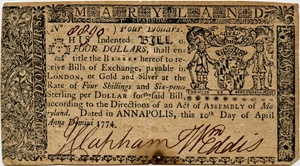 MARYLAND
No Four Dollars.
THIS Indented BILL of
FOUR DOLLARS, shall en-
title the BEARER hereof to re-
ceive Bills of Exchange, payable in
LONDON, or Gold and Silver at the
Rate of Four Shillings and Six-pence
Sterling per DOLLAR for the said Bill,
according to the Directions of an Act of ASSEMBLY of Ma-
ryland. Dated in ANNAPOLIS, this 10th Day of April
Anno Domini 1774.
J Clapham W Eddis